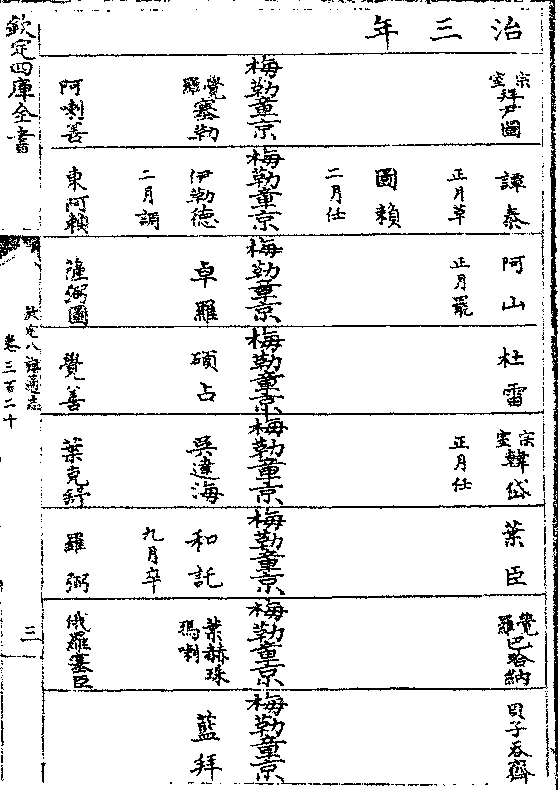 治三年
宗室拜尹圖
梅勒章京
覺羅塞勒
阿喇善
譚泰
正月革
圖賴
二月任
梅勒章京
伊勒德
二月調
東阿賴
阿山
正月罷
梅勒章京
卓羅
薩弼圖
杜雷
梅勒章京
碩占
覺善
宗室韓岱
正月任
梅勒章京
吳達海
葉克舒
葉臣
梅勒章京
和託
九月卒
羅弼
覺羅巴哈納
梅勒章京
葉赫珠瑪喇
俄羅塞臣
貝子吞齊
梅勒章京
藍拜
欽定四庫全書
欽定八旗通志
卷三百二十
三